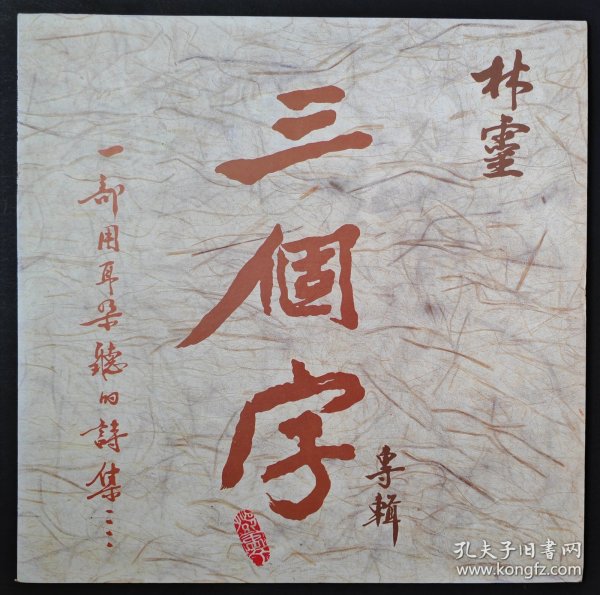 林靈
三個字
專輯
一部用耳朵聽的詩集……
孔夫子旧书网
www.kongfz.com